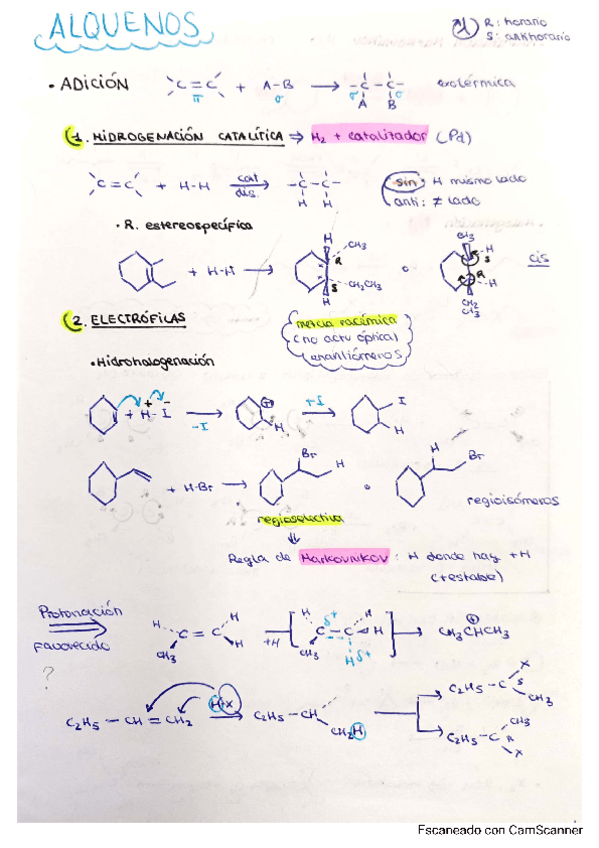 ALQUENOS
R: horario
S: antihorario
• ADICIÓN C=C + A-B → -C-C- exotérmica
π σ σ σ
A B
1. HIDROGENACIÓN CATALÍTICA ⇒ H2 + catalizador (Pd)
C=C + H-H cat dis. → -C-C- sin: H mismo lado
H H anti: ≠ lado
• R. estereospecífica
+ H-H → H CH3 R S CH2CH3 H o CH3 H S R H CH2 CH3 cis
2. ELECTRÓFILAS
mezcla racémica
(no actv óptica)
enantiómeros
• Hidrohalogenación
+ H-I → -I + H → +I I H
+ H-Br → Br H o H Br
regioisómeros
regioselectiva
⇓
Regla de Markovnikov: H donde hay +H
(+estable)
Protonación
Favorecido
H CH3 C=C H H +H → [H CH3 C-C R H H δ+ δ+] → CH3CHCH3 +
?
C2H5-CH=CH2 H-X → C2H5-CH CH2H → C2H5-C X S CH3
C2H5-C CH3 R X
Escaneado con CamScanner